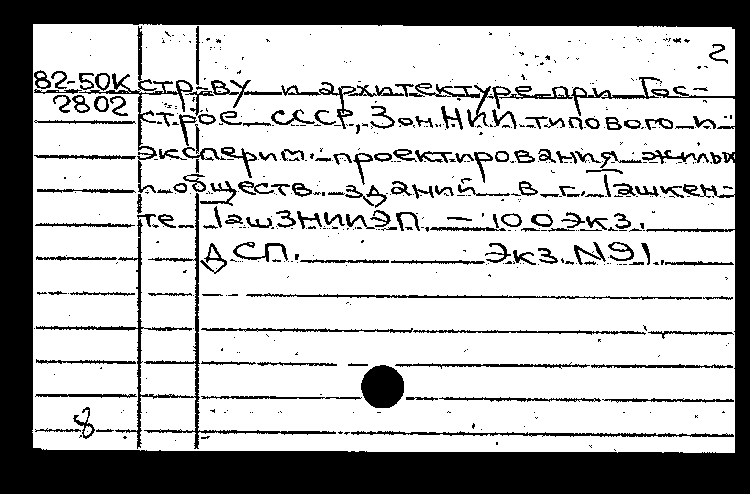 2
82-50К стр-ву и архитектуре при Гос-
2802 строе СССР, Зон. НИИ типового и
эксперим. проектирования жилых
и обществ. зданий в г. Ташкен-
те ТашЗНИИЭП. — 100 экз.
ДСП. Экз. N91.
8